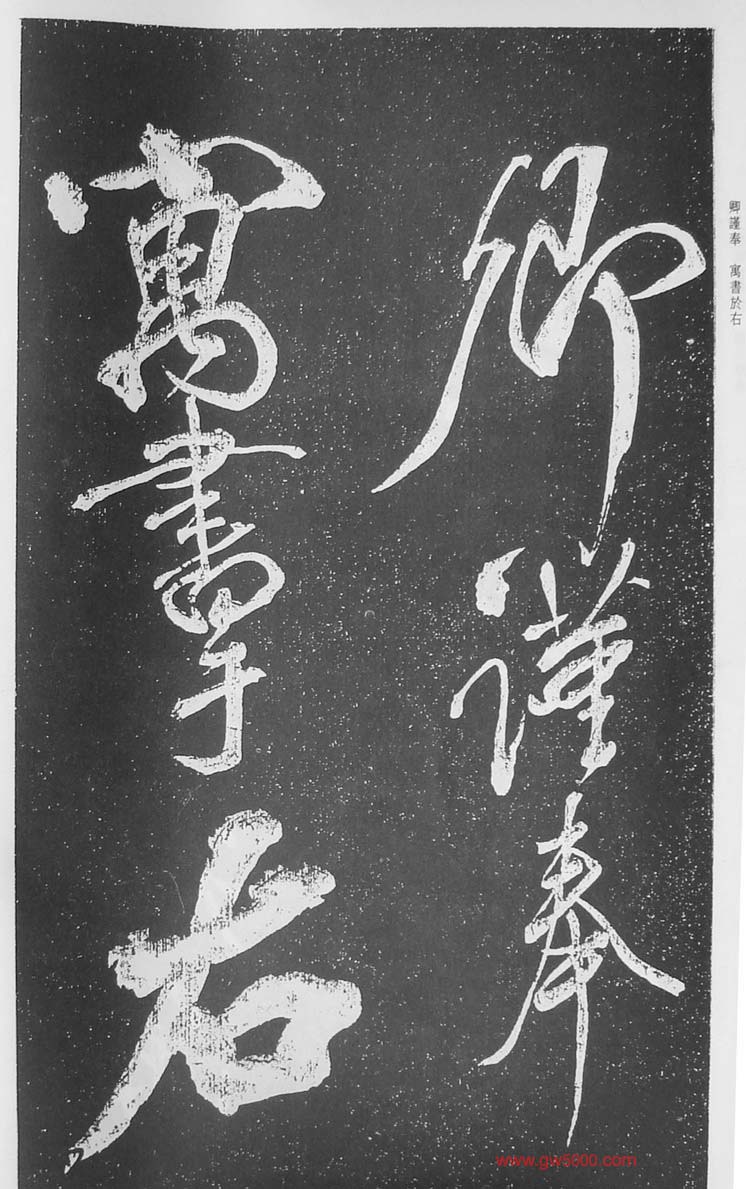 卿謹奉　寓書於右
卿謹奉
寓書于右
www.gw5800.com